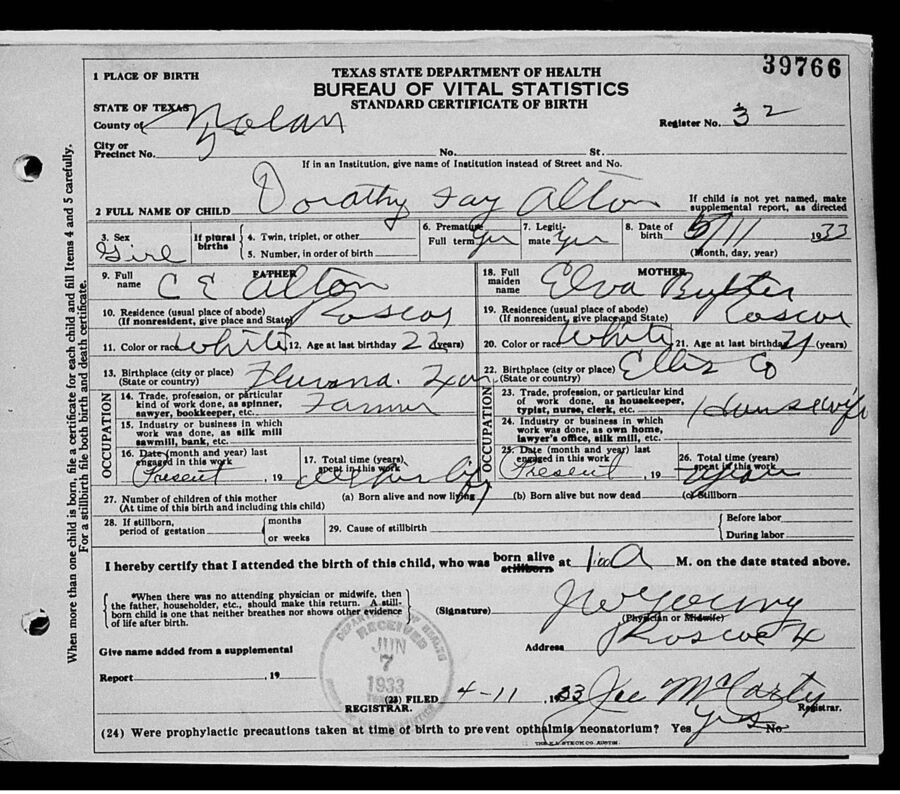 39766
1 PLACE OF BIRTH
TEXAS STATE DEPARTMENT OF HEALTH
BUREAU OF VITAL STATISTICS
STANDARD CERTIFICATE OF BIRTH
STATE OF TEXAS
County of Nolan
Register No. 32
City or
Precinct No. 5 No. St.
If in an Institution, give name of Institution instead of Street and No.
2 FULL NAME OF CHILD Dorathy Fay Alton
If child is not yet named, make
supplemental report, as directed
3. Sex Girl
If plural
births
4. Twin, triplet, or other
5. Number, in order of birth
6. Premature
Full term Yes
7. Legiti-
mate Yes
8. Date of
birth 5/11 1933
(Month, day, year)
FATHER
9. Full
name C E Alton
10. Residence (usual place of abode)
(If nonresident, give place and State) Roscoe
11. Color or race White 12. Age at last birthday 22 (years)
13. Birthplace (city or place)
(State or country) Fluvana. Texas
OCCUPATION
14. Trade, profession, or particular
kind of work done, as spinner,
sawyer, bookkeeper, etc. Farmer
15. Industry or business in which
work was done, as silk mill
sawmill, bank, etc.
16. Date (month and year) last
engaged in this work
Present , 19
17. Total time (years)
spent in this work
All his life
MOTHER
18. Full
maiden
name Elva
19. Residence (usual place of abode)
(If nonresident, give place and State) Roscoe
20. Color or race White 21. Age at last birthday (years)
22. Birthplace (city or place)
(State or country) Ellis Co
OCCUPATION
23. Trade, profession, or particular kind
of work done, as housekeeper,
typist, nurse, clerk, etc. Housewife
24. Industry or business in which
work was done, as own home,
lawyer's office, silk mill, etc.
25. Date (month and year) last
engaged in this work
Present , 19
26. Total time (years)
spent in this work
27. Number of children of this mother
(At time of this birth and including this child)
(a) Born alive and now living
(b) Born alive but now dead
(c) Stillborn
28. If stillborn,
period of gestation
months
or weeks
29. Cause of stillbirth
Before labor
During labor
I hereby certify that I attended the birth of this child, who was born alive stillborn at 1:00 A M. on the date stated above.
*When there was no attending physician or midwife, then
the father, householder, etc., should make this return. A still-
born child is one that neither breathes nor shows other evidence
of life after birth.
(Signature) J W Young
(Physician or Midwife)
Address Roscoe Tx
Give name added from a supplemental
Report , 19
DEPARTMENT OF HEALTH
RECEIVED
JUN
7
1933
(23) FILED 4-11 1933 Joe McCarty
REGISTRAR.
Registrar.
(24) Were prophylactic precautions taken at time of birth to prevent opthalmia neonatorium? Yes Yes No
THE E.L. STECK CO. AUSTIN.
When more than one child is born, file a certificate for each child and fill Items 4 and 5 carefully.
For a stillbirth file both birth and death certificate.